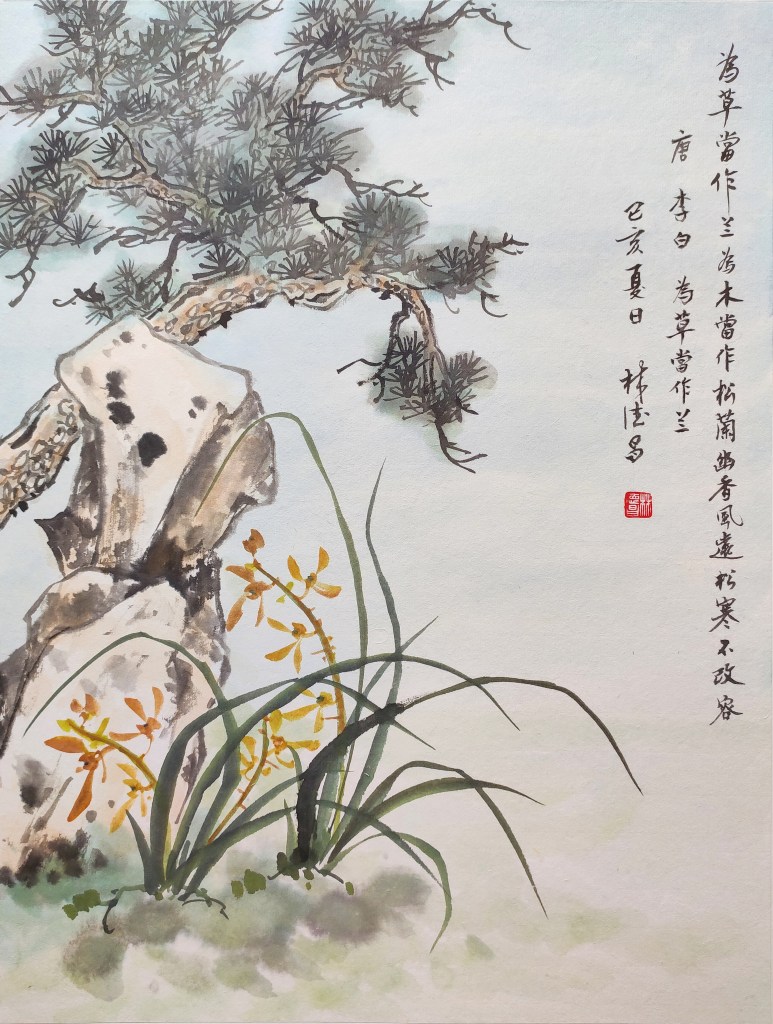 為草當作兰為木當作松蘭幽香風遠松寒不改容
唐 李白 為草當作兰
己亥夏日 林德昌